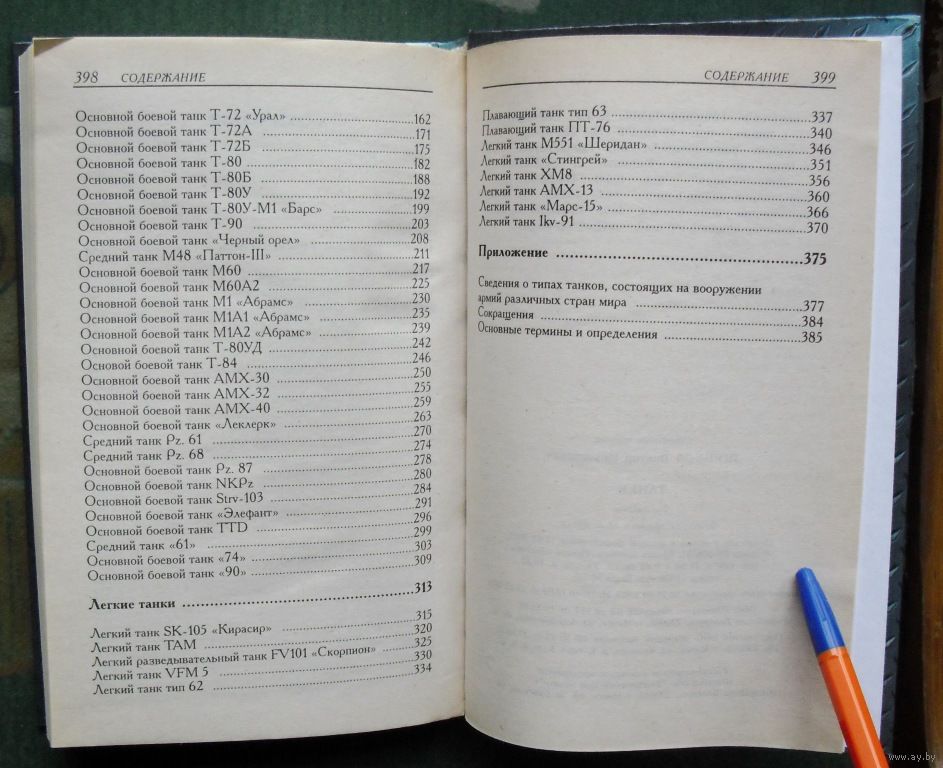 398 СОДЕРЖАНИЕ
Основной боевой танк Т-72 «Урал» 162
Основной боевой танк Т-72А 171
Основной боевой танк Т-72Б 175
Основной боевой танк Т-80 182
Основной боевой танк Т-80Б 188
Основной боевой танк Т-80У 192
Основной боевой танк Т-80У-М1 «Барс» 199
Основной боевой танк Т-90 203
Основной боевой танк «Черный орел» 208
Средний танк М48 «Паттон-III» 211
Основной боевой танк М60 217
Основной боевой танк М60А2 225
Основной боевой танк М1 «Абрамс» 230
Основной боевой танк М1А1 «Абрамс» 235
Основной боевой танк М1А2 «Абрамс» 239
Основной боевой танк Т-80УД 242
Основой боевой танк Т-84 246
Основной боевой танк АМХ-30 250
Основной боевой танк АМХ-32 255
Основной боевой танк АМХ-40 259
Основной боевой танк «Леклерк» 263
Средний танк Pz. 61 270
Средний танк Pz. 68 274
Основной боевой танк Pz. 87 278
Основной боевой танк NKPz 280
Основной боевой танк Strv-103 284
Основной боевой танк «Элефант» 291
Основной боевой танк TTD 296
Средний танк «61» 299
Основной боевой танк «74» 303
Основной боевой танк «90» 309
Легкие танки 313
Легкий танк SK-105 «Кирасир» 315
Легкий танк ТАМ 320
Легкий разведывательный танк FV101 «Скорпион» 325
Легкий танк VFM 5 330
Легкий танк тип 62 334
СОДЕРЖАНИЕ 399
Плавающий танк тип 63 337
Плавающий танк ПТ-76 340
Легкий танк М551 «Шеридан» 346
Легкий танк «Стингрей» 351
Легкий танк ХМ8 356
Легкий танк АМХ-13 360
Легкий танк «Марс-15» 366
Легкий танк Ikv-91 370
Приложение 375
Сведения о типах танков, состоящих на вооружении
армий различных стран мира 377
Сокращения 384
Основные термины и определения 385
www.ay.by